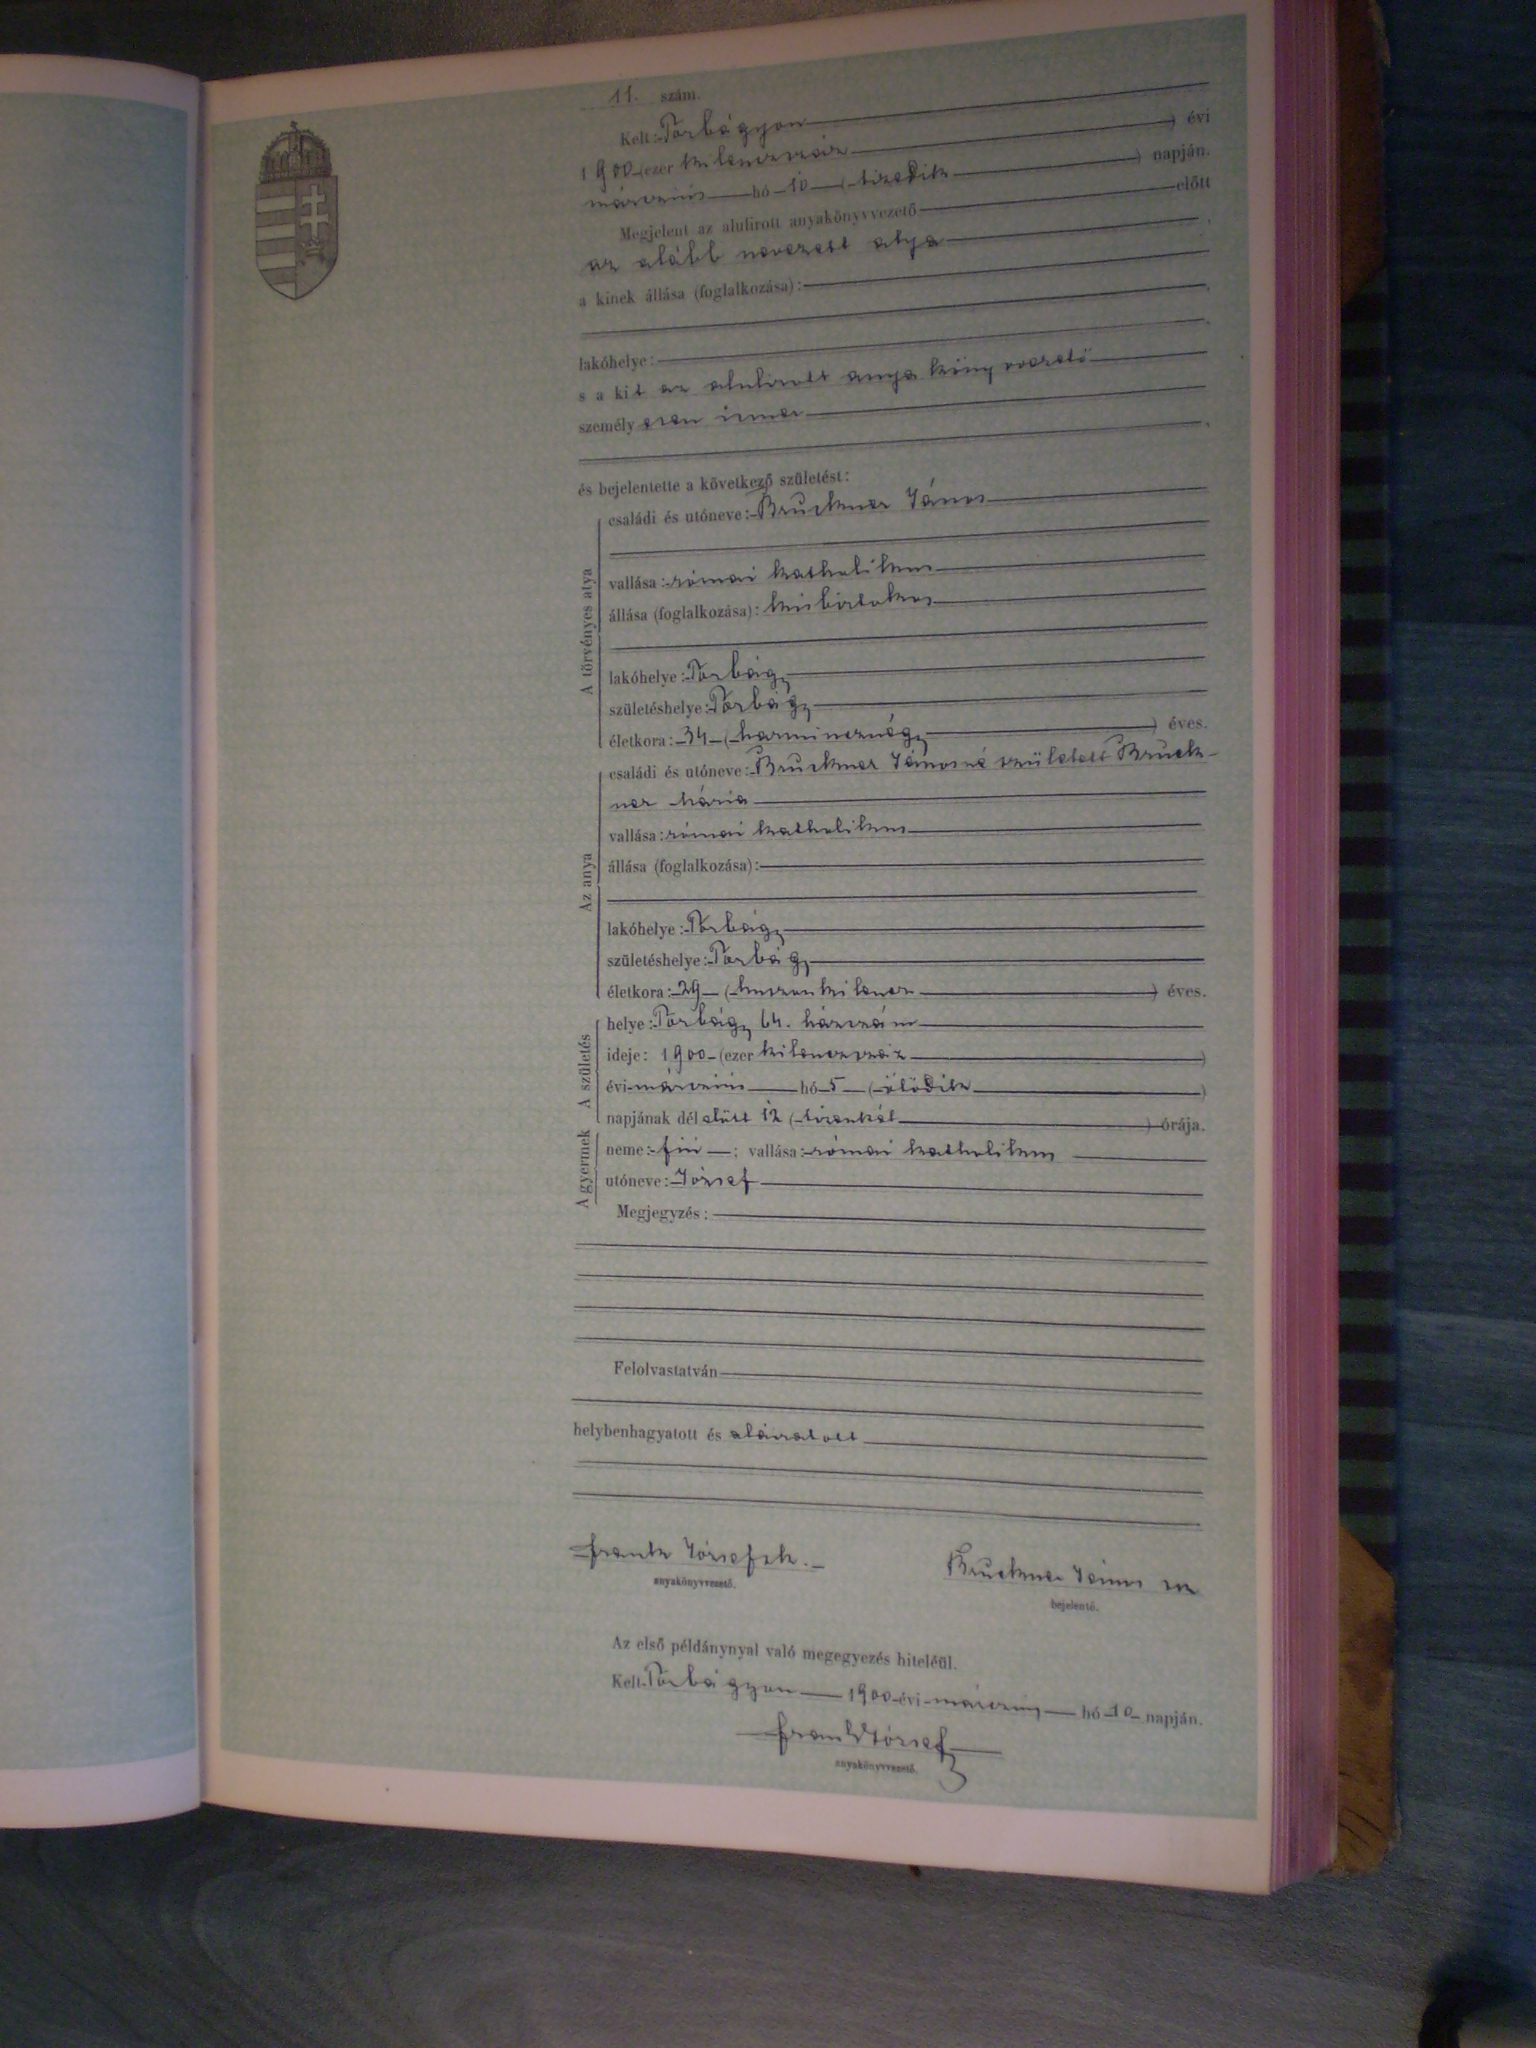 11. szám.
Kelt: Torbágyon
1900 (ezer kilenczszáz ) évi
márczius hó 10 ( tizedik ) napján.
Megjelent az alulirott anyakönyvvezető előtt
az alább nevezett atya
a kinek állása (foglalkozása):
lakóhelye:
s a kit az alulirott anyakönyvvezető
személyesen ismer
és bejelentette a következő születést:
A törvényes atya
családi és utóneve: Bruckner János
vallása: római katholikus
állása (foglalkozása): kisbirtokos
lakóhelye: Torbágy
születéshelye: Torbágy
életkora: 34 ( harmincznégy ) éves.
Az anya
családi és utóneve: Bruckner Jánosné született Bruck-
ner Mária
vallása: római katholikus
állása (foglalkozása):
lakóhelye: Torbágy
születéshelye: Torbágy
életkora: 29 ( huszonkilencz ) éves.
A születés
helye: Torbágy 64. házszám
ideje: 1900 (ezer kilenczszáz )
évi márczius hó 5 ( ötödik )
napjának dél előtt 12 ( tizenkét ) órája.
A gyermek
neme: fiú ; vallása: római katholikus
utóneve: József
Megjegyzés:
Felolvastatván
helybenhagyatott és aláiratott
Frank József sk.
anyakönyvvezető.
Bruckner János sk
bejelentő.
Az első példánynyal való megegyezés hiteléül.
Kelt Torbágyon 1900 évi márczius hó 10 napján.
Frank József
anyakönyvvezető.